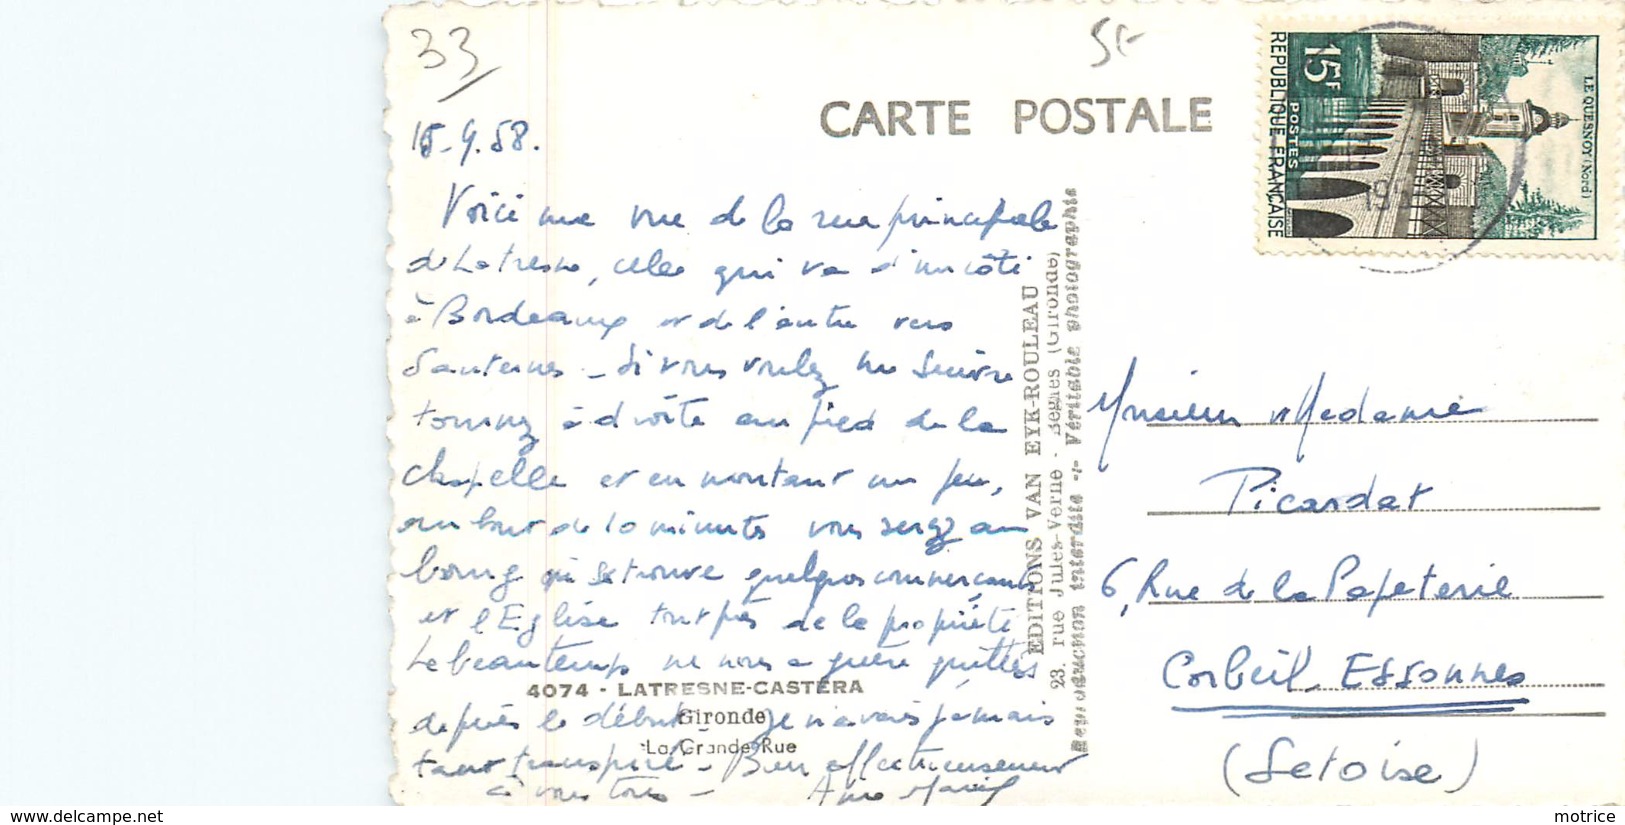 33
5F
CARTE POSTALE
15 F
POSTES
REPUBLIQUE FRANCAISE
LE QUESNOY (Nord)
15-9.58.
Voici une vue de la rue principale
de Latresne, celle qui va d'un côté
à Bordeaux et de l'autre vers
Sauternes - Si vous voulez me suivre
tournez à droite au pied de la
chapelle et en montant un peu,
au bout de 10 minutes vous serez au
bourg où se trouve quelques commerçants
et l'Eglise tout près de la propriété
Le beau temps ne nous a guère quittés
depuis le début je n'avais jamais
tant transpiré - Bien affectueusement
à vous tous -
4074 - LATRESNE-CASTÉRA
Gironde
La Grande Rue
EDITIONS VAN EYK-ROULEAU
23, rue Jules-Verne - Bègles (Gironde)
Reproduction interdite - Véritable photographie
Monsieur et Madame
Picardat
6, Rue de la Papeterie
Corbeil-Essonnes
(Setoise)
www.delcampe.net
motrice